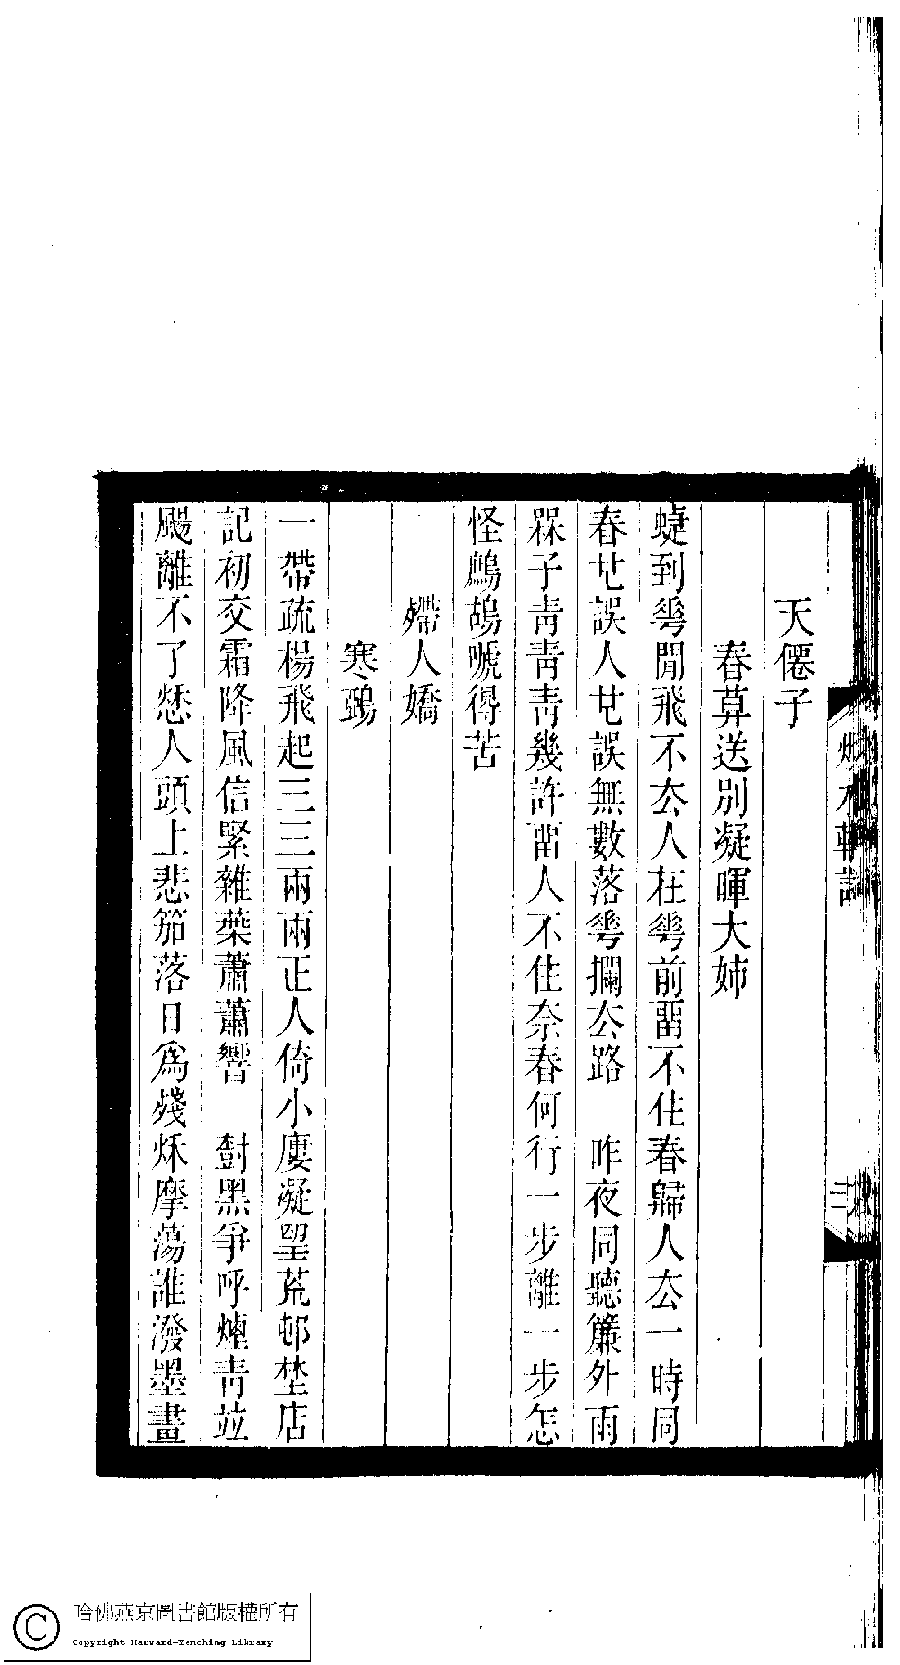 天僊子
春暮送別凝暉大姊
蜨到䔢閒飛不厺人在䔢前畱不住春歸人厺一時同
春也誤人也誤無數落䔢攔厺路　昨夜同聽簾外雨
槑子靑靑靑幾許畱人不住奈春何行一步離一步怎
怪鷓鴣嗁得苦
殢人嬌
寒鵶
一帶疏楊飛起三三兩兩正人倚小廔凝朢荒邨埜店
記初交霜降風信緊雜葉蕭蕭響　樹黑爭呼煙靑竝
颺離不了愁人頭上悲笳落日爲殘秌摩蕩誰潑墨畫
三
哈佛燕京圖書館版權所有
Copyright Harvard-Yenching Library